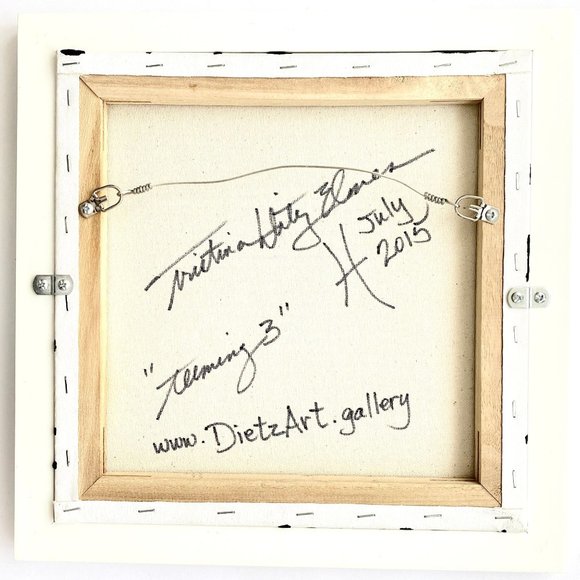 Kristina Dietz Elmes
July
2015
"Teeming 3"
www.DietzArt.gallery